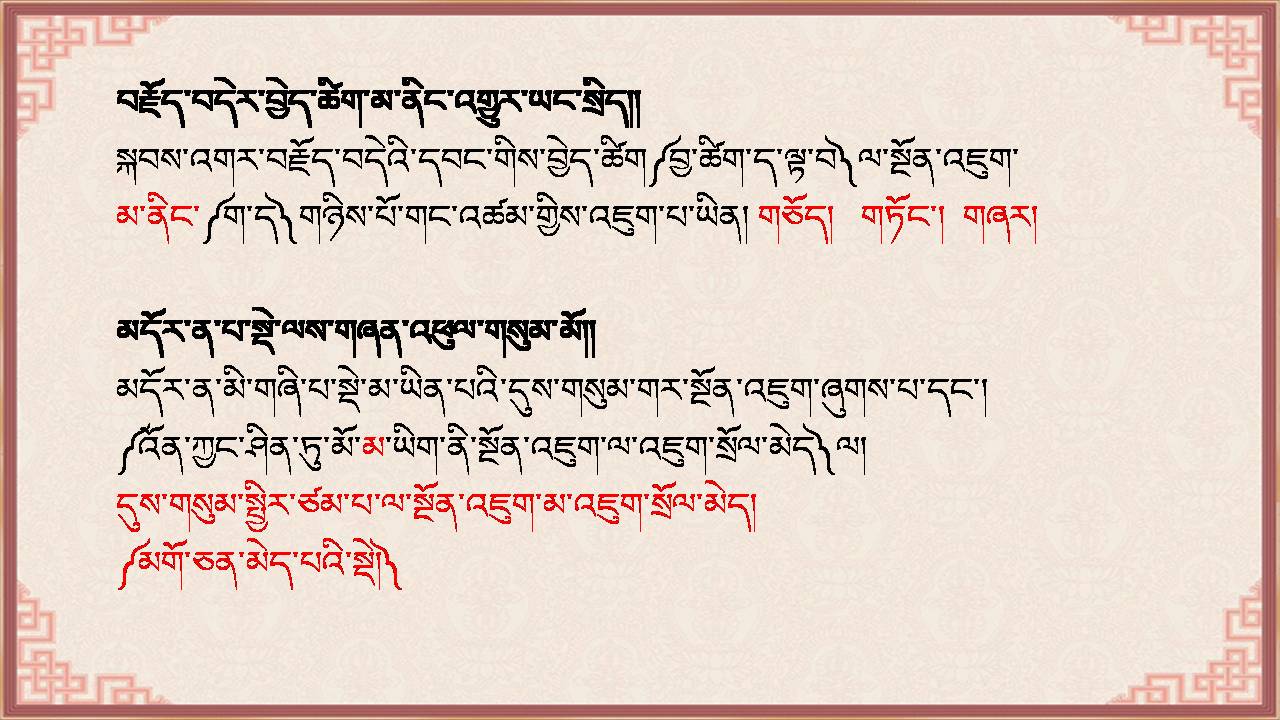 བརྗོད་བདེར་བྱེད་ཚིག་མ་ནིང་འགྱུར་ཡང་སྲིད།།
སྐབས་འགར་བརྗོད་བདེའི་དབང་གིས་བྱེད་ཚིག༼བྱ་ཚིག་ད་ལྟ་བ༽ལ་སྔོན་འཇུག་
མ་ནིང་༼ག་ད༽གཉིས་པོ་གང་འཚམ་གྱིས་འཇུག་པ་ཡིན། གཅོད། གཏོང་། གཞར།
མདོར་ན་པ་སྡེ་ལས་གཞན་འཕུལ་གསུམ་མོ།།
མདོར་ན་མི་གཞི་པ་སྡེ་མ་ཡིན་པའི་དུས་གསུམ་གར་སྔོན་འཇུག་ཞུགས་པ་དང་།
༼འོན་ཀྱང་ཤིན་ཏུ་མོ་མ་ཡིག་ནི་སྔོན་འཇུག་ལ་འཇུག་སྲོལ་མེད༽ལ།
དུས་གསུམ་སྤྱིར་ཙམ་པ་ལ་སྔོན་འཇུག་མ་འཇུག་སྲོལ་མེད།
༼མགོ་ཅན་མེད་པའི་སྡེ།༽